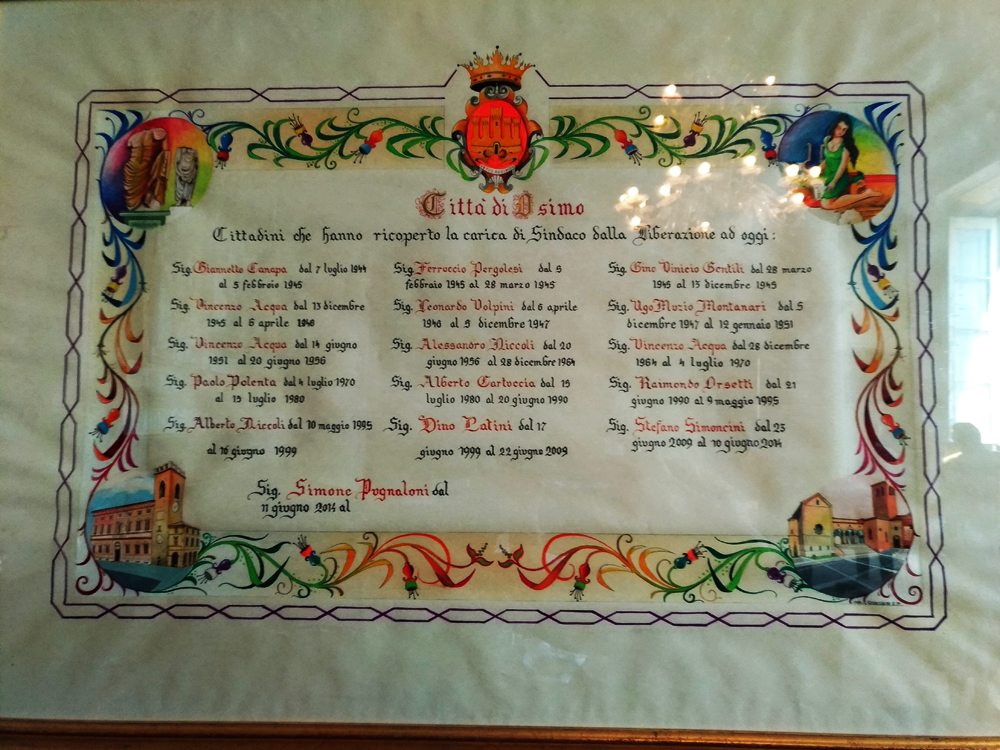 Città di Osimo
Cittadini che hanno ricoperto la carica di Sindaco dalla Liberazione ad oggi:
Sig. Giannetto Canapa dal 7 luglio 1944
al 5 febbraio 1945
Sig. Ferruccio Pergolesi dal 5
febbraio 1945 al 28 marzo 1945
Sig. Gino Vinicio Gentili dal 28 marzo
1945 al 13 dicembre 1945
Sig. Vincenzo Acqua dal 13 dicembre
1945 al 6 aprile 1946
Sig. Leonardo Volpini dal 6 aprile
1946 al 5 dicembre 1947
Sig. Ugo Muzio Montanari dal 5
dicembre 1947 al 12 gennaio 1951
Sig. Vincenzo Acqua dal 14 giugno
1951 al 20 giugno 1956
Sig. Alessandro Niccoli dal 20
giugno 1956 al 28 dicembre 1964
Sig. Vincenzo Acqua dal 28 dicembre
1964 al 4 luglio 1970
Sig. Paolo Polenta dal 4 luglio 1970
al 15 luglio 1980
Sig. Alberto Cartuccia dal 15
luglio 1980 al 20 giugno 1990
Sig. Raimondo Orsetti dal 21
giugno 1990 al 9 maggio 1995
Sig. Alberto Niccoli dal 10 maggio 1995
al 16 giugno 1999
Sig. Dino Latini dal 17
giugno 1999 al 22 giugno 2009
Sig. Stefano Simoncini dal 23
giugno 2009 al 10 giugno 2014
Sig. Simone Pugnaloni dal
11 giugno 2014 al